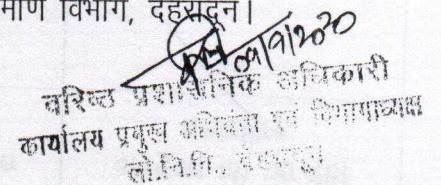 माण विभाग, देहरादून।
09/9/2020
वरिष्ठ प्रशासनिक अधिकारी
कार्यालय प्रमुख अभियंता एवं विभागाध्यक्ष
लो.नि.वि., देहरादून